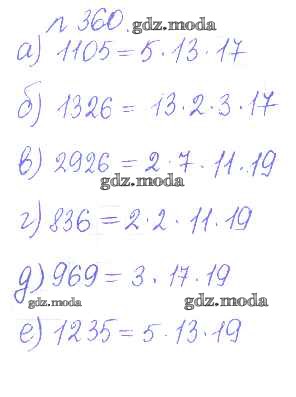 № 360.
gdz.moda
а) 1105 = 5 · 13 · 17
б) 1326 = 13 · 2 · 3 · 17
в) 2926 = 2 · 7 · 11 · 19
gdz.moda
г) 836 = 2 · 2 · 11 · 19
д) 969 = 3 · 17 · 19
gdz.moda
gdz.moda
е) 1235 = 5 · 13 · 19